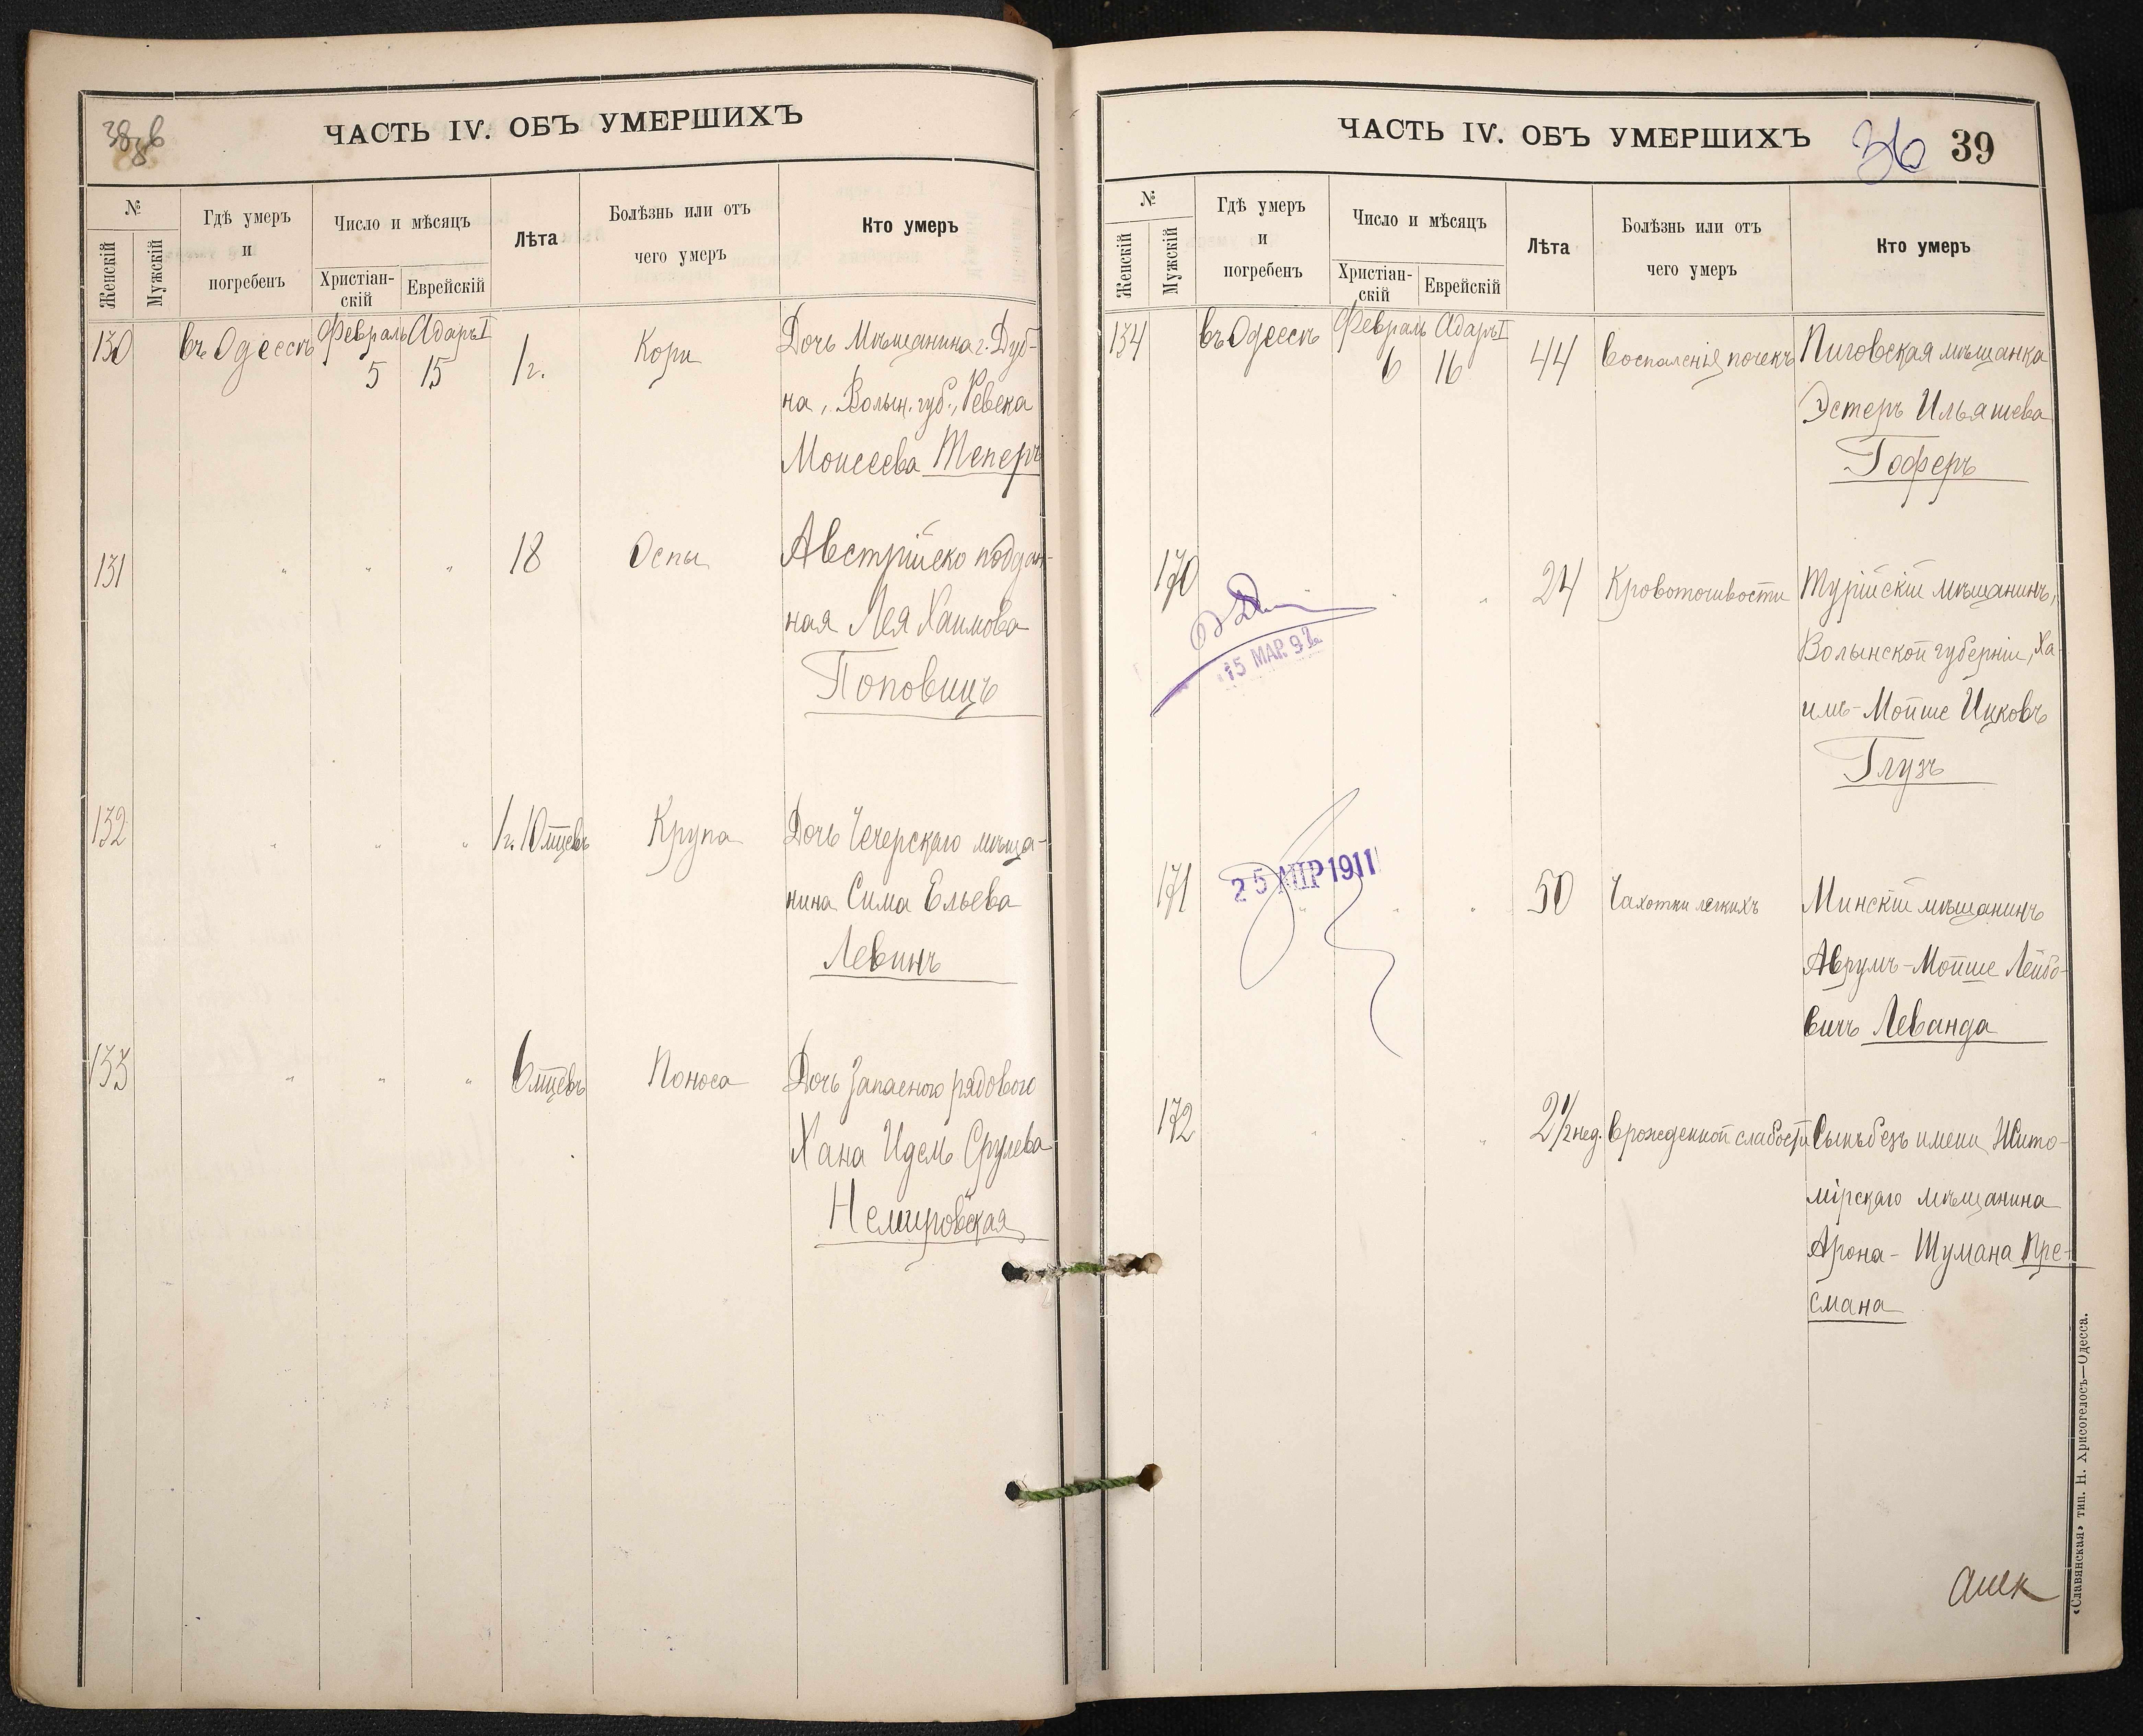 38 зв
ЧАСТЬ IV. ОБЪ УМЕРШИХЪ
№
Женскій
Мужскій
Гдѣ умеръ
и
погребенъ
Число и мѣсяцъ
Христіан-
скій
Еврейскій
Лѣта
Болѣзнь или отъ
чего умеръ
Кто умеръ
130 въ Одессѣ Февраль 5 Адаръ I 15 1 г. Кори Дочь Мѣщанина г. Дуб-
на, Волын. губ., Ревека
Моисеева Теперъ
131 " " " 18 Оспы Австрійско поддан-
ная Лея Хаимова
Поповицъ
132 " " " 1 г. 10 мцевъ Крупа Дочь Чечерскаго мѣща-
нина Сима Ельева
Левинъ
133 " " " 6 мцевъ Поноса Дочь запасного рядового
Хана Идесь Срулева
Немировская
ЧАСТЬ IV. ОБЪ УМЕРШИХЪ
36 39
№
Женскій
Мужскій
Гдѣ умеръ
и
погребенъ
Число и мѣсяцъ
Христіан-
скій
Еврейскій
Лѣта
Болѣзнь или отъ
чего умеръ
Кто умеръ
134 въ Одессѣ Февраль 6 Адаръ I 16 44 Воспаленія почекъ Пиговская мѣщанка
Эстеръ Ильяшева
Гоферъ
170 " " " 24 Кровоточивости Турійскій мѣщанинъ,
Волынской губерніи, Ха-
имъ-Мойше Ицковъ
Глузъ
15 МАР. 92
171 " " " 50 Чахотки легкихъ Минскій мѣщанинъ
Аврумъ-Мойше Лейбо-
вичъ Леванда
25 АПР 1911
172 " " " 2 1/2 нед. Врожденной слабости Сынъ безъ имени Жито-
мірскаго мѣщанина
Арона-Шумана Пре-
смана
«Славянская» тип. Н. Хрисогелосъ—Одесса.